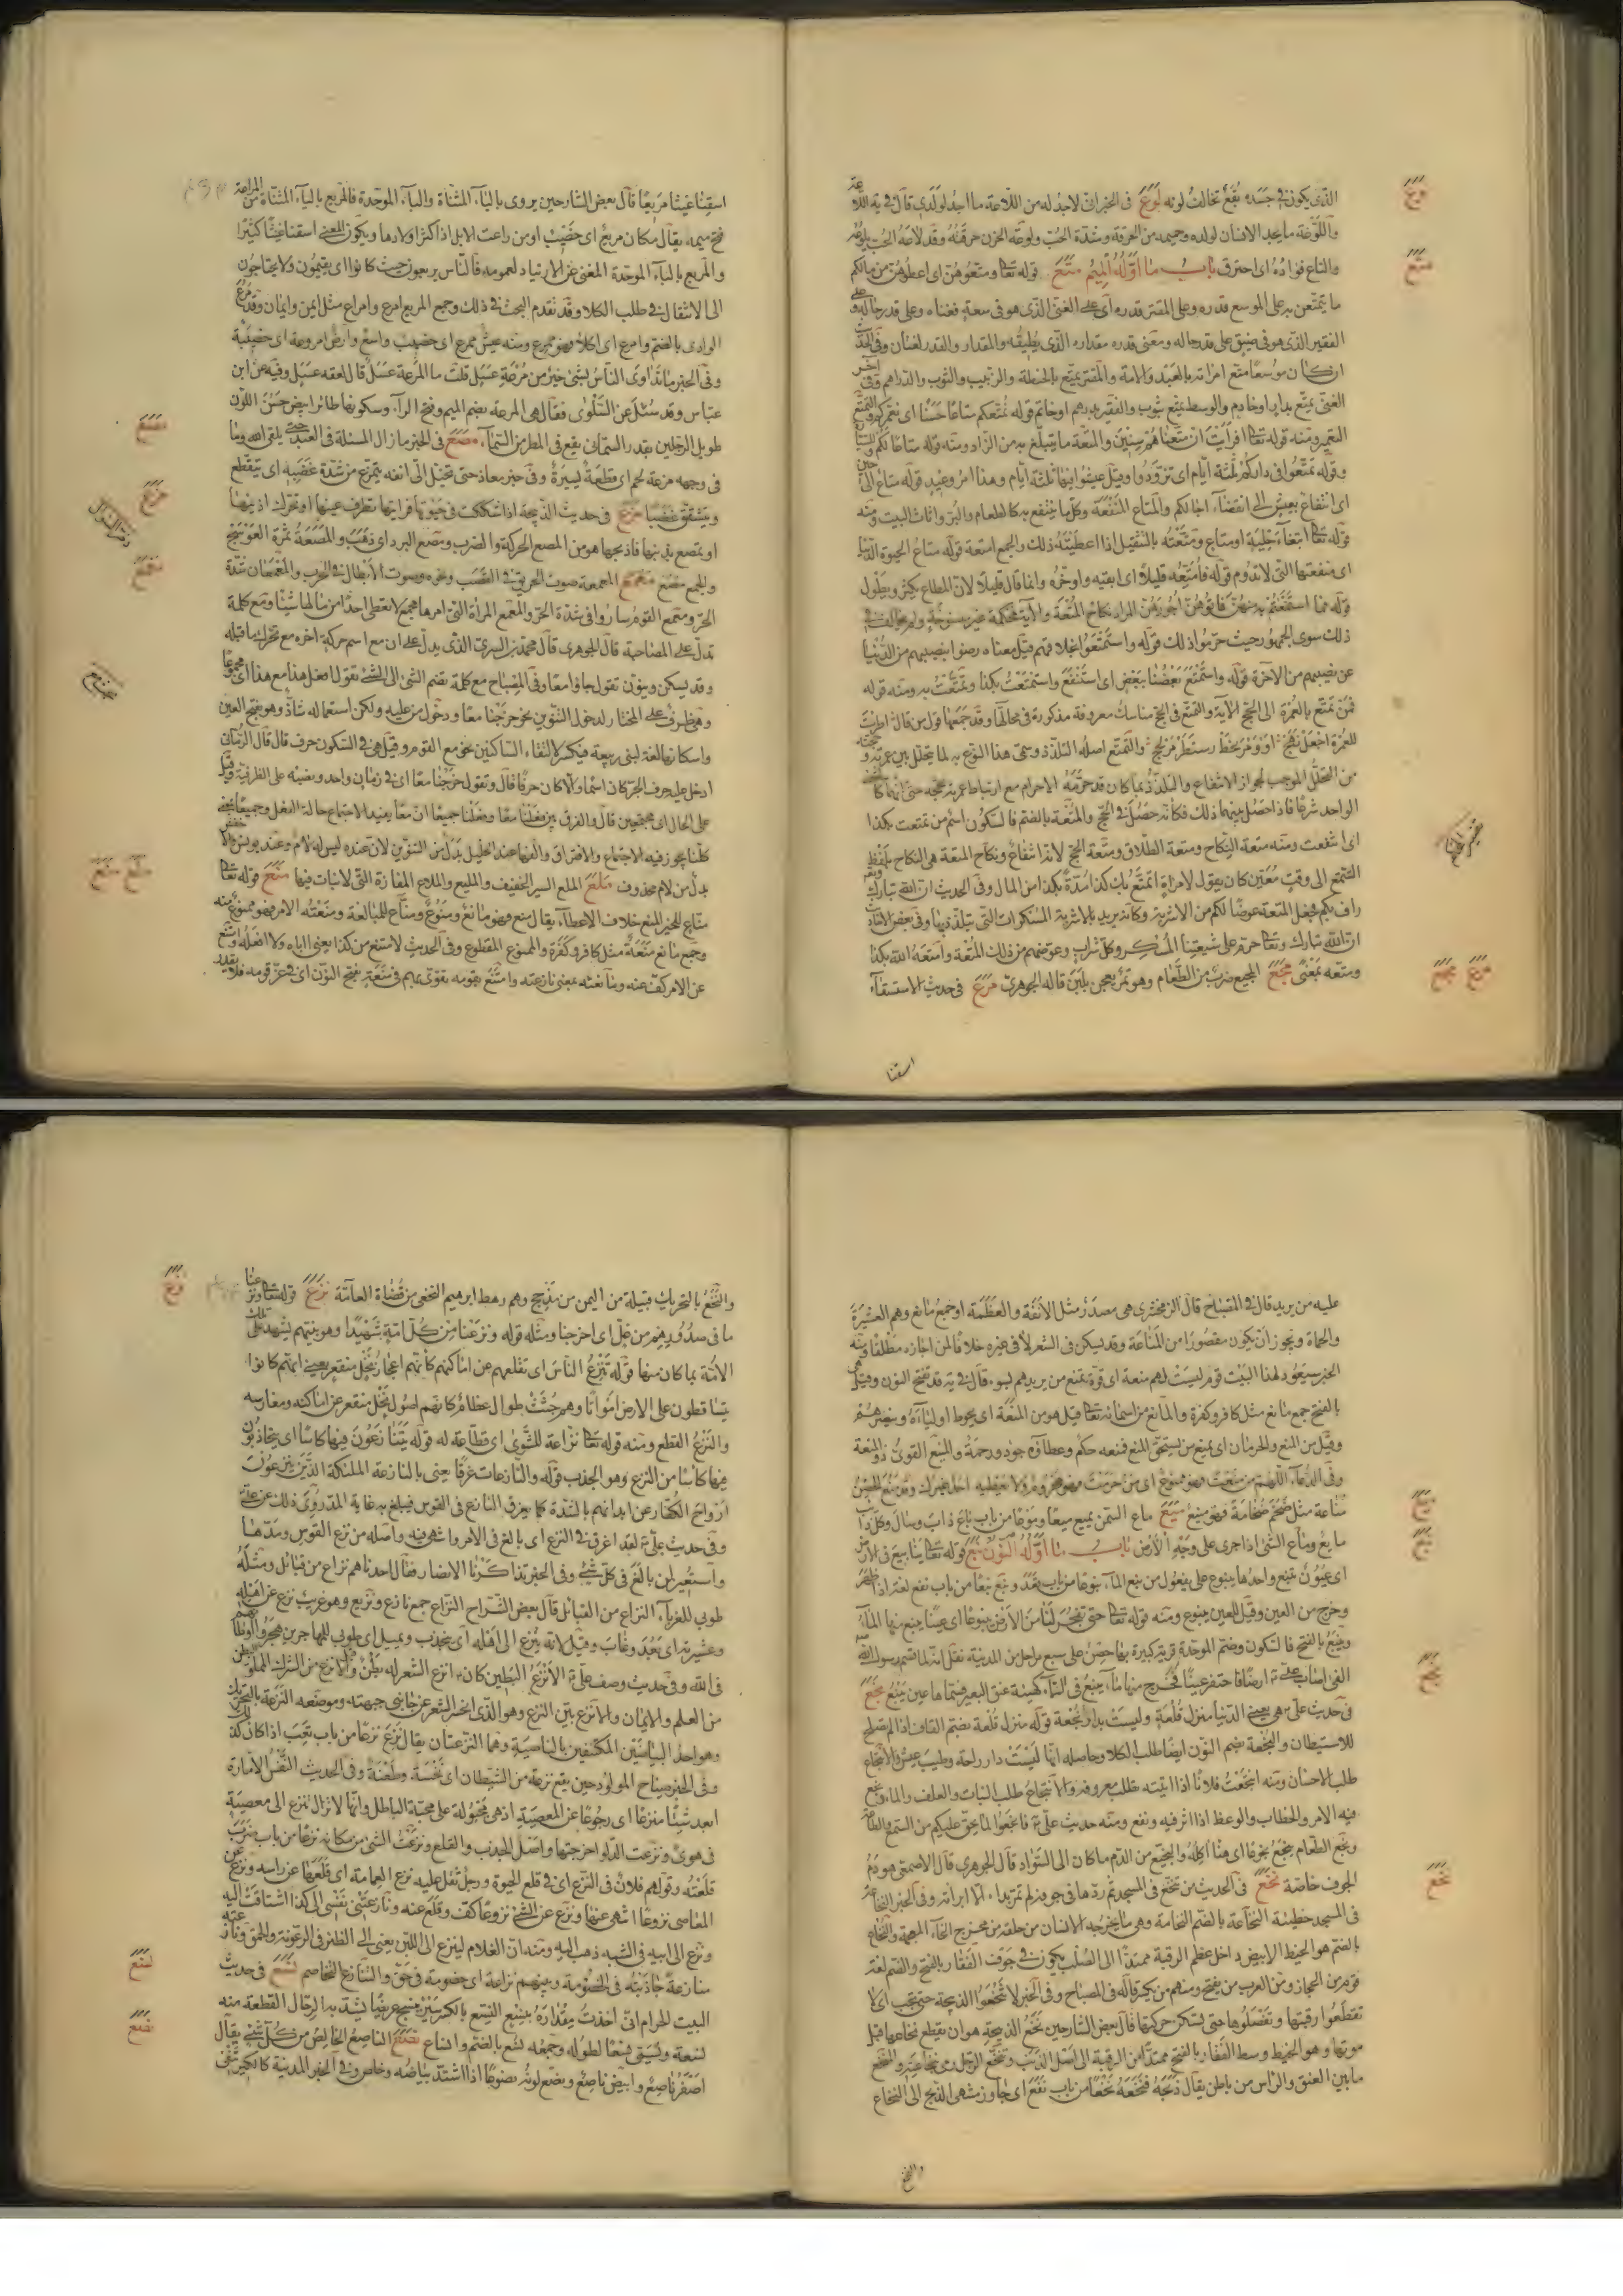 الذي يكون في جسده بقع تخالف لونه لوع في الخبر اني لاجد له من اللاعة ما اجد لولدي قال في يه اللاعة
واللوعة ما يجد الانسان لولده وحميمه من الحرقة وشدة الحب ولوعه الحزن حرقته وقد لاعه الحب يلوعه
والتاع فؤاده اى احترق باب ما اوله الميم متع قوله تعا ومتعوهن اى اعطوهن من مالكم
ما يتمتعن به على الموسع قدره وعلى المقتر قدره اى على الغنى الذى هو فى سعة لغناه وعلى قدر حاله و على
الفقير الذى هو فى ضيق على قدر حاله ومعنى قدره مقداره الذى يطيقه والمقدار والقدر لغتان وفى الحديث
ان كان موسعا متع امراته بالعبد والامة والمقتر يمتع بالحنطة والزبيب والثوب والدراهم وفى آخر
الغنى يمتع بدار اوخادم والوسط يمتع بثوب والفقير بدرهم اوخاتم قوله يمتعكم متاعا حسنا اى يعمركم والتمتع
التعمير ومنه قوله تعا افرايت ان متعناهم سنين والمتعة ما يتبلغ به من الزاد ومنه قوله متاعا لكم وللسيارة
وقوله تمتعوا فى داركم ثلثة ايام اى تزودوا وقيل عيشوا فيها ثلثة ايام وهذا امر وعيد قوله متاع الى حين
اى انتفاع بعيش الى انقضاء اجالكم والمتاع المنفعة وكل ما ينتفع به كالطعام والبز واثاث البيت ومنه
قوله تعا ابتغاء حلية او متاع ومتعته بالتثقيل اذا اعطيته ذلك والجمع امتعة قوله متاع الحيوة الدنيا
اى منفعتها التى لا تدوم قوله فامتعه قليلا اى ابقيه واوخره وانما قال قليلا لان المطاع يكثر ويطول
قوله فما استمتعتم به منهن فاتوهن اجورهن المراد نكاح المتعة والآية محكمة غير منسوخة ولم يخالف فى
ذلك سوى الجمهور حيث حرموا ذلك قوله واستمتعوا بخلاقهم قيل معناه رضوا بنصيبهم من الدنيا
عن نصيبهم من الآخرة قوله واستمتع بعضنا ببعض اى استنفع واستمتعت بكذا وتمتعت به ومنه قوله
فمن تمتع بالعمرة الى الحج الآية والتمتع فى الحج مناسك معروفة مذكورة فى محالها وقد جمعها قول من قال
للعمرة اجعل نهج والتمتع اصله التلذذ وسمى هذا النوع به لما يتخلل بين عمرته و حجته
من التحلل الموجب لجواز الانتفاع والتلذذ بما كان قد حرمه الاحرام مع ارتباط عمرته بحجه حتى انهما كالشئ
الواحد شرعا فاذا حصل بينهما ذلك فكانه حصل فى الحج والمتعة بالضم فالسكون اسم من تمتعت بكذا
اى انتفعت ومنه متعة النكاح ومتعة الطلاق ومتعة الحج لانه انتفاع ونكاح المتعة هى النكاح بلفظ
التمتع الى وقت معين كان يقول لامراة اتمتع بك كذا مدة بكذا من المال وفى الحديث ان الله تبارك وتعا
راف بكم فجعل المتعة عوضا لكم من الاشربة وكانه يريد بالاشربة المسكرات التى يتلذذ بها وفى بعض الاخبار
ان الله تبارك وتعا حرم على شيعتنا المسكر من كل شراب وعوضهم من ذلك المتعة وامتعه الله بكذا
ومتعه بمعنى مجع المجيع ضرب من الطعام وهو تمر يعجن بلبن قاله الجوهرى مرع فى حديث الاستسقاء
اسقنا
لوع
متع
مرع مجع
اسقنا غيثا مريعا قال بعض الشارحين يروى بالياء المثناة والباء الموحدة فالمريع بالياء المثناة من المراعة
فتح ميمه يقال مكان مريع اى خصيب او من راعت الابل اذا كثر اولادها ويكون المعنى اسقنا غيثا كثيرا
والمربع بالباء الموحدة المغنى عن الارتياد لعمومه فالناس يربعون حيث كانوا اى يقيمون ولا يحتاجون
الى الانتقال فى طلب الكلا وقد تقدم البحث فى ذلك وجمع المريع امرع وامراع مثل ايمن وايمان وقد مرع
الوادى بالضم وامرع اى اكلا فهو ممرع ومنه عيش ممرع اى خصيب واسع وارض امروعة اى خصيبة
وفى الخبر ما تداوى الناس بشئ خير من مرعة عسل قلت ما المرعة عسل قال لعقة عسل وفيه عن ابن
عباس وقد سئل عن السلوى فقال هى المرعة بضم الميم وفتح الراء وسكونها طائر ابيض حسن اللون
طويل الرجلين بقدر السمانى يقع فى المطر من السماء مزع فى الخبر ما زال المسئلة فى العبد حتى يلقى الله وما
فى وجهه مزعة لحم اى قطعة يسيرة وفى خبر معاذ حتى تخيل الى انفه يتمزع من شدة غضبه اى يتقطع
ويتشقق غضبا مصع فى حديث الذبيحة اذا شككت فى حيوتها فرايتها تطرف عينها او تحرك اذنيها
او تمصع بذنبها فاذبحها هو من المصع الحركة والضرب ومصع البرد اى ذهب والمصعة ثمرة العوسج
والجمع مصع معمع المعمعة صوت الحريق فى القصب ونحوه وصوت الابطال فى الحرب والمعمعان شدة
الحر ومعمع القوم ساروا فى شدة الحر والمعمع المراة التى امرها مجمع لا تعطى احدا من مالها شيئا ومع كلمة
تدل على المصاحبة قال الجوهرى قال محمد بن السرى الذى يدل على ان مع اسم حركة اخره مع تحرك ما قبله
وقد يسكن وينون تقول جاؤا معا وفى المصباح مع كلمة تضم الشئ الى الشئ تقول افعل هذا مع هذا اى مجموعا
وهى ظرف على المختار لدخول التنوين نحو خرجنا معا ودخول من عليه ولكن استعماله شاذ وهو بفتح العين
واسكانها لغة لبنى ربيعة فيكسر لالتقاء الساكنين نحو مع القوم وقيل هى فى السكون حرف قال الرمانى
ادخل عليه حرف الجر كان اسما والا كان حرفا قال وتقول خرجنا معا اى فى زمان واحد ونصبه على الظرفية وقيل
على الحال اى مجتمعين قال والفرق بين فعلنا معا وفعلنا جميعا ان معا يفيد الاجتماع حالة الفعل وجميعا
كلنا يجوز فيه الاجتماع والافتراق والفها عند الخليل بدل من التنوين لان عنده ليس له لام وعند يونس
بدل من لام محذوف ملع الملع السير الخفيف والمليع والملاع المفازة التى لا نبات فيها منع قوله تعا
مناع للخير المنع خلاف الاعطاء يقال منع فهو مانع ومنوع ومناع للمبالغة ومنعته الامر فهو ممنوع منه
وجمع مانع منعة مثل كافر وكفرة والممنوع المقطوع وفى الحديث لا ستمنع من كذا يعنى اباه ولا افعله وامتنع
عن الامر كف عنه ومانعته بمعنى نازعته وامتنع بقومه تقوى بهم فى منعة بفتح النون اى فى عز قومه فلا يقدر
مزع
مصع
معمع
ملع منع
عليه من يريد قال فى المصباح قال الزمخشرى هى مصدر مثل الانفة والعظمة او جمع مانع وهم العشيرة
والحماة ويجوز ان يكون مقصورا من المناعة وقد يسكن فى الشعر لا فى غيره خلافا لمن اجازه مطلقا ومنه
الخبر سيعوذ لهذا البيت قوم ليست لهم منعة اى قوة تمنع من يريدهم بسوء قال فى يه قد تفتح النون وقيل هى
بالفتح جمع مانع مثل كافر وكفرة والمانع من اسمائه تعا قيل هو من المنعة اى يحوط اوليائه وينصرهم
وقيل من المنع والحرمان اى يمنع من يستحق المنع فمنعه حكم وعطاؤه جود ورحمة والمنيع القوى ذو المنعة
وفى الدعاء اللهم من منعت فهو ممنوع اى من حرمت فهو محروم ولا يعطيه احد غيرك وقد منع الحصن
مناعة مثل ضخم ضخامة فهو منيع ميع ماع السمن يميع ميعا وموعا من باب باع ذاب وسال وكل ذائب
مايع وماع الشئ اذا جرى على وجه الارض باب ما اوله النون نبع قوله تعا ينابيع فى الارض
اى عيون تنبع واحدها ينبوع على يفعول من نبع الماء نبوعا من باب قعد ونبع نبعا من باب نفع لغة اذا ظهر
وخرج من العين وقيل للعين ينبوع ومنه قوله تعا حتى تفجر لنا من الارض ينبوعا اى عينا ينبع منها الماء
وينبع بالفتح فالسكون وضم الموحدة قرية كبيرة بها حصن على سبع مراحل من المدينة نقل انه لما قسم رسول الله
الفئ اصاب على ع ارضا فاحتفر عينا فخرج منها ماء ينبع فى السماء كهيئة عنق البعير فسماها عين ينبع نجع
فى حديث على ع هى يعنى الدنيا منزل قلعة وليست بدار نجعة قوله منزل قلعة بضم القاف اذا لم تصلح
للاستيطان والنجعة بضم النون ايضا طلب الكلا وحاصله انها ليست دار راحة وطيب عيش والانتجاع
طلب الاحسان ومنه انتجعت فلانا اذا اتيته تطلب معروفه والانتجاع طلب النبات والعلف والماء ونجع
فيه الامر والخطاب والوعظ اذا اثر فيه ونفع ومنه حديث على ع فانجعوا لما يحق عليكم من السمع والطاعة
ونجع الطعام ينجع نجوعا اى هنا اكله والنجيع من الدم ما كان الى السواد قال الجوهرى قال الاصمعى هو دم
الجوف خاصة نخع فى الحديث من تنخع فى المسجد ثم ردها فى جوفه لم تمر بداء الا ابراته وفى الخبر النخاعة
فى المسجد خطيئة النخاعة بالضم النخامة وهى ما يخرجه الانسان من حلقه من مخرج الخاء المعجمة والنخاع
بالضم هو الخيط الابيض داخل عظم الرقبة ممتدا الى الصلب يكون فى جوف الفقار بالفتح والضم لغة
قوم من الحجاز ومن العرب من يفتح ومنهم من يكسر قاله فى المصباح وفى الخبر لا تنخعوا الذبيحة حتى تجب اى لا
تقطعوا رقبتها وتفصلوها حتى تسكن حركتها قال بعض الشارحين نخع الذبيحة هو ان يقطع نخاعها قبل
موتها وهو الخيط وسط الفقار بالفتح ممتدا من الرقبة الى اصل الذنب وتنخع الرجل رمى بنخاعته والمنخع
ما بين العنق والراس من باطن يقال ذبحه فنخعه نخعا من باب نفع اى جاوز منتهى الذبح الى النخاع
والنخع
ميع
نبع
نجع
نخع
والنخع بالتحريك قبيلة من اليمن من مذحج وهم رهط ابرهيم النخعى من قضاة العامة نزع قوله تعا ونزعنا
ما فى صدورهم من غل اى اخرجنا ومثله قوله ونزعنا من كل امة شهيدا وهو نبيهم ليشهد على تلك
الامة بما كان منها قوله تنزع الناس اى تقلعهم عن اماكنهم كانهم اعجاز نخل منقعر يعنى انهم كانوا
يتساقطون على الارض امواتا وهم جثث طوال عظام كانهم اصول نخل منقعر عن اماكنه ومغارسه
والنزع القطع ومنه قوله تعا نزاعة للشوى اى قطاعة له قوله يتنازعون فيها كاسا اى يتجاذبون
فيها كاسا من النزع وهو الجذب قوله والنازعات غرقا يعنى بالنازعة الملئكة الذين ينزعون
ارواح الكفار عن ابدانهم بالشدة كما يغرق النازع فى القوس فيبلغ به غاية المد روى ذلك عن على ع
وفى حديث على ع لقد اغرق فى النزع اى بالغ فى الامر وانتهى فيه واصله من نزع القوس ومدها
واستعير لمن بالغ فى كل شئ وفى الخبر تذاكرنا الانصار فقال احدنا هم نزاع من قبائل ومثله
طوبى للغرباء النزاع من القبائل قال بعض الشراح النزاع جمع نازع ونزيع وهو غريب نزع عن اهله
وعشيرته اى بعد وغاب وقيل لانه ينزع الى اهله اى ينجذب ويميل اى طوبى للمهاجرين هجروا اوطانهم
فى الله وفى حديث وصف على ع الانزع البطين كان انزع الشعر له بطن والانزع من الشرك المملو بطن
من العلم والايمان والانزع بين النزع وهو الذى انحسر الشعر عن جانبى جبهته وموضعه النزعة بالتحريك
وهو احد البياضين المكتنفين بالناصية وهما النزعتان يقال نزع نزعا من باب تعب اذا كان كذلك
وفى الخبر صياح المولود حين يقع نزعة من الشيطان اى نخسة وطعنة وفى الحديث النفس الامارة
ابعد شيئا منزعا اى رجوعا عن المعصية اذ هى مجبولة على محبة الباطل وانها لا تزال تنزع الى معصية
فى هوى ونزعت الدلو اخرجتها واصل الجذب والقلع ونزعت الشئ من مكانه نزعا من باب ضرب
قلعته وقولهم فلان فى النزع اى فى قلع الحيوة ورجل ثقل عليه نزع العمامة اى قلعها عن راسه ونزع عن
المعاصى نزوعا انتهى عنها ونزع عن الشئ نزوعا كف وقلع عنه ونازعتنى نفسى الى كذا اشتاقت اليه
ونزع الى ابيه فى الشبه ذهب اليه ومنه ان الغلام لينزع الى اللبن يعنى الى الظئر فى الرعونة والحمق ونازعته
منازعة جاذبته فى الخصومة وبينهم نزاعة اى خصومة فى حق والتنازع التخاصم نسع فى حديث
البيت الحرام انى اخذت مقداره بنسع النسع بالكسر سير ينسج عريضا ليشد به الرحال القطعة منه
نسعة ويسمى نسعا لطوله وجمعه نسع بالضم وانساع نصع الناصع الخالص من كل شئ يقال
اصفر ناصع وابيض ناصع ونصع لونه نصوعا اذا اشتد بياضه وخلص وفى الخبر المدينة كالكير تنفى
نزع
نسع
نصع